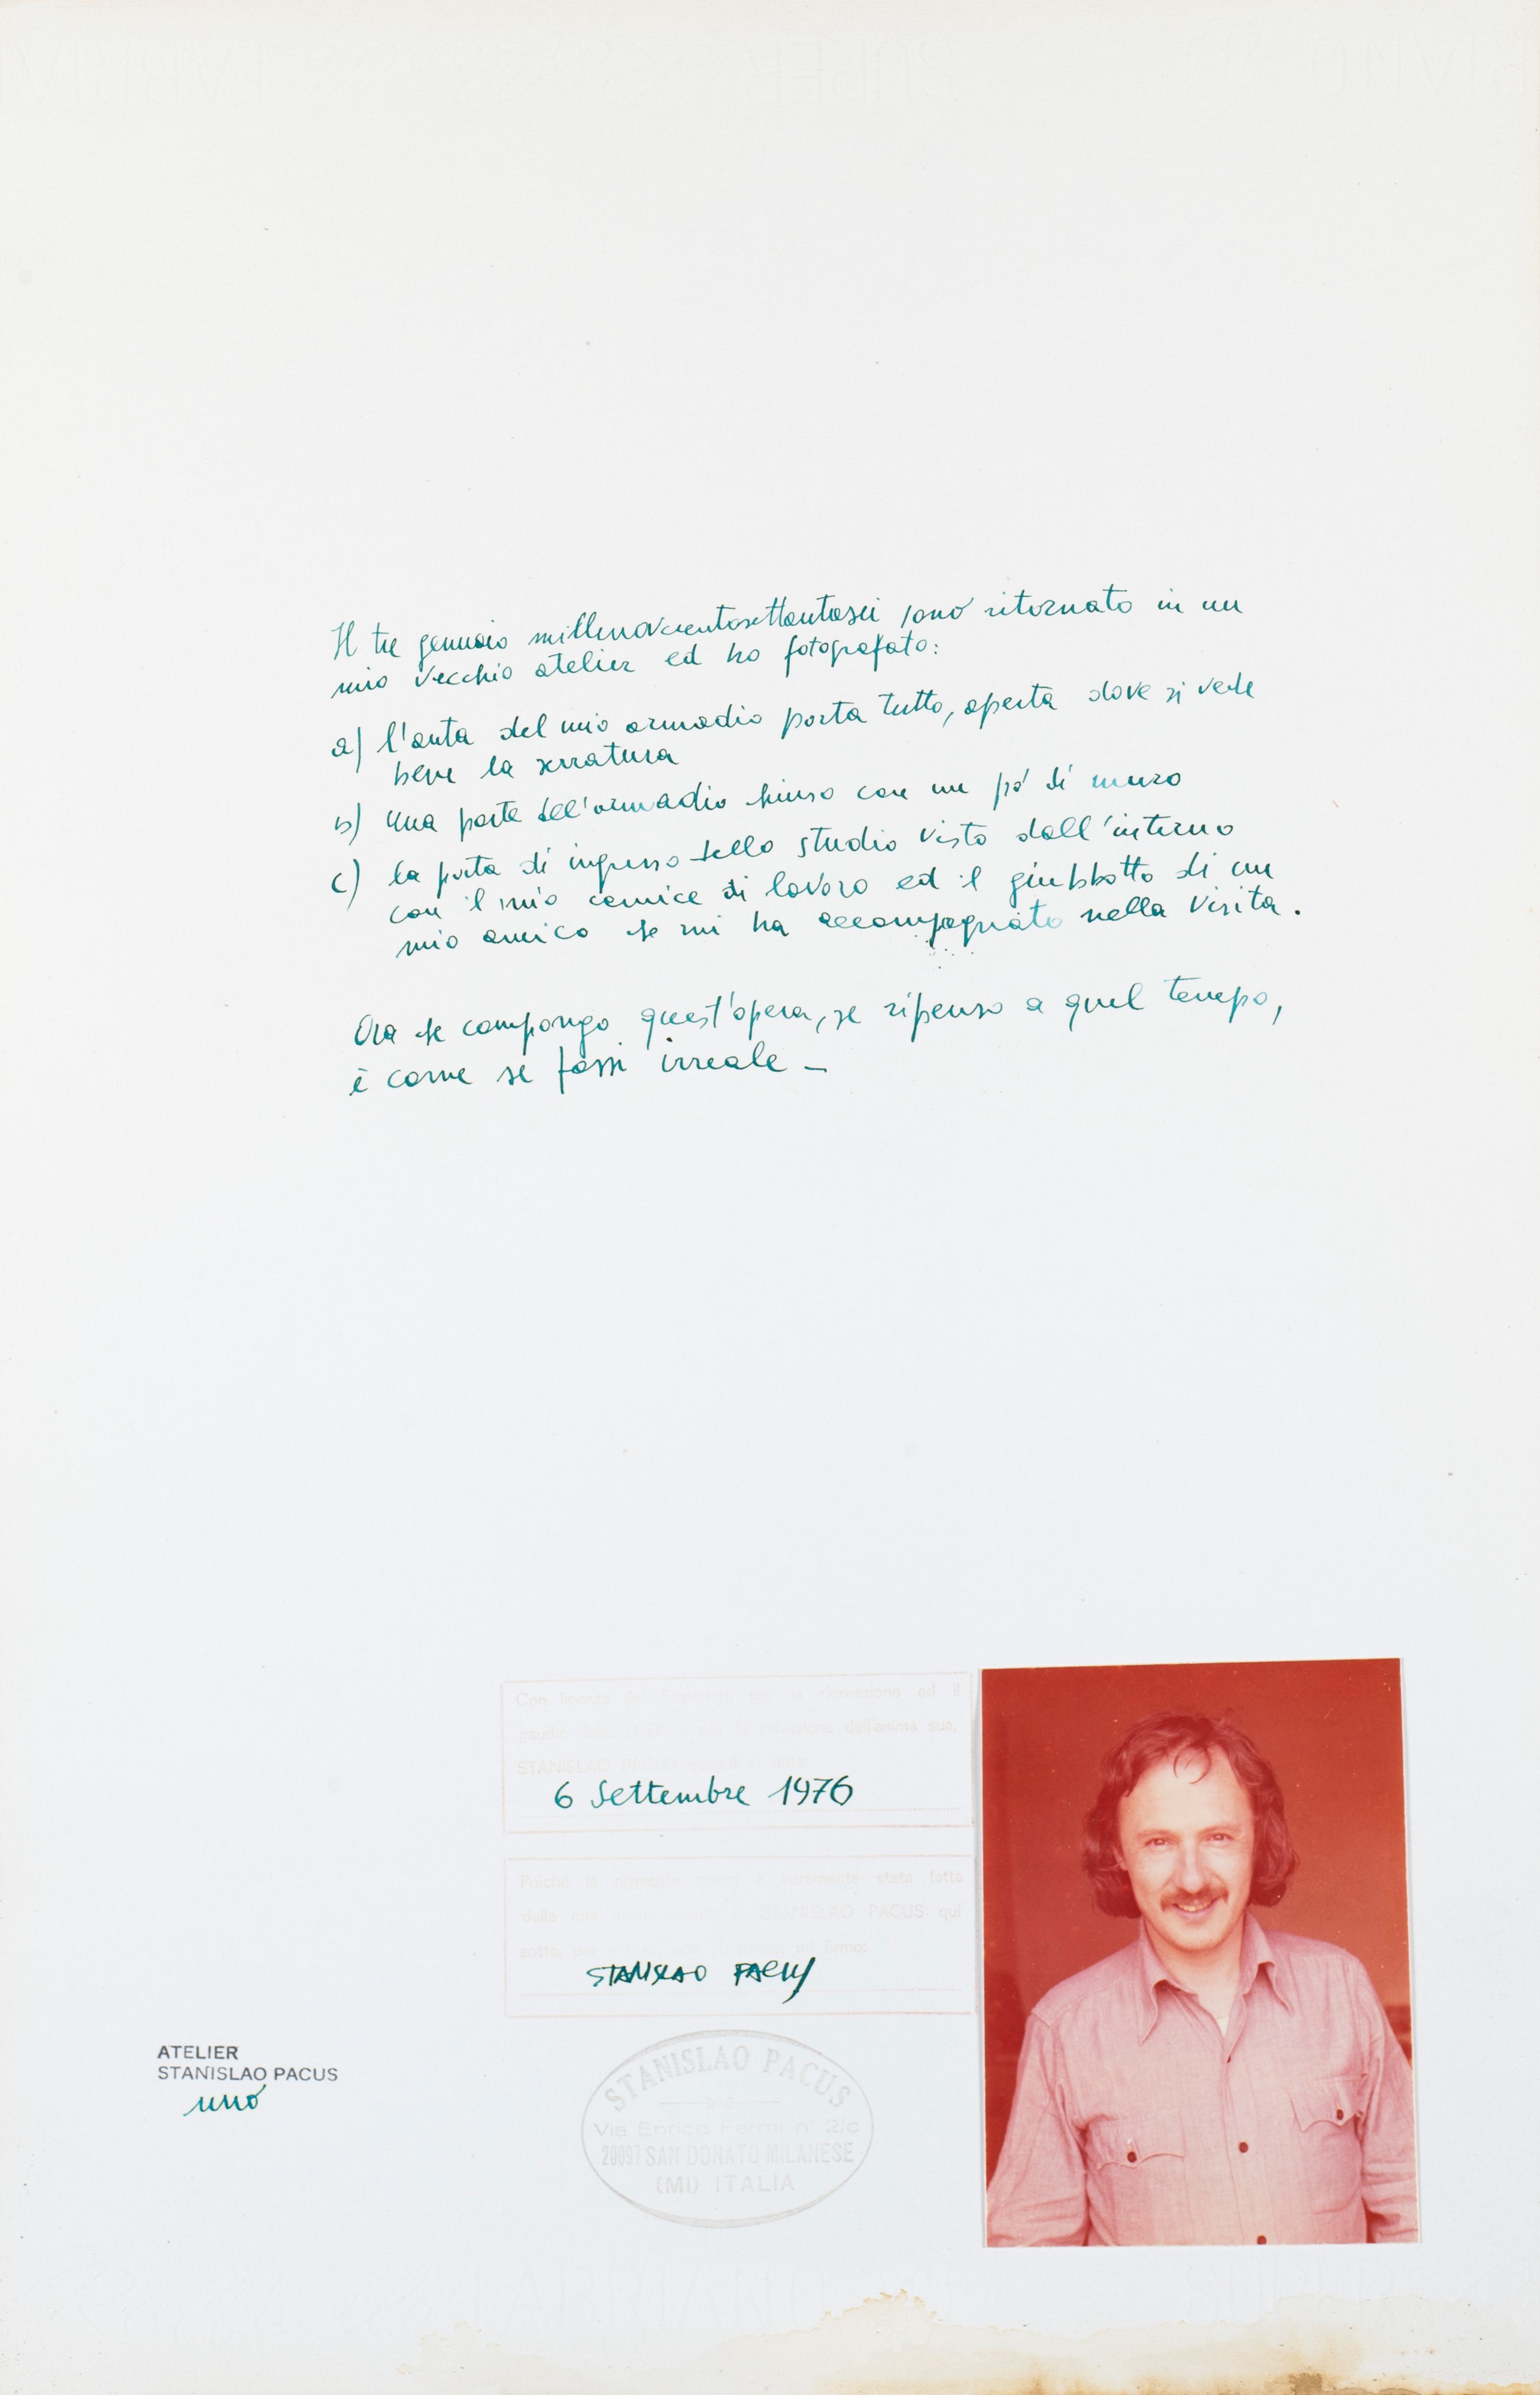 Il tre gennaio millenovecentosettantasei sono ritornato in un
mio vecchio atelier ed ho fotografato:
a) l'anta del mio armadio porta tutto, aperta dove si vede
bene la serratura
b) una parte dell'armadio chiuso con un pò di muro
c) la porta di ingresso dello studio visto dall'interno
con il mio camice di lavoro ed il giubbotto di un
mio amico che mi ha accompagnato nella visita.
Ora che compongo quest'opera, se ripenso a quel tempo,
è come se fossi irreale –
Con licenza de' Superiori, per la ricreazione ed il
gaudio della e per la salvazione dell'anima sua,
STANISLAO PACUS
6 Settembre 1976
Poichè la presente opera è veramente stata fatta
dalla mia mano STANISLAO PACUS qui
sotto, mi firmo:
STANISLAO PACUS
ATELIER
STANISLAO PACUS
uno
STANISLAO PACUS
Via Enrico Fermi n° 2/c
20097 SAN DONATO MILANESE
(MI) ITALIA